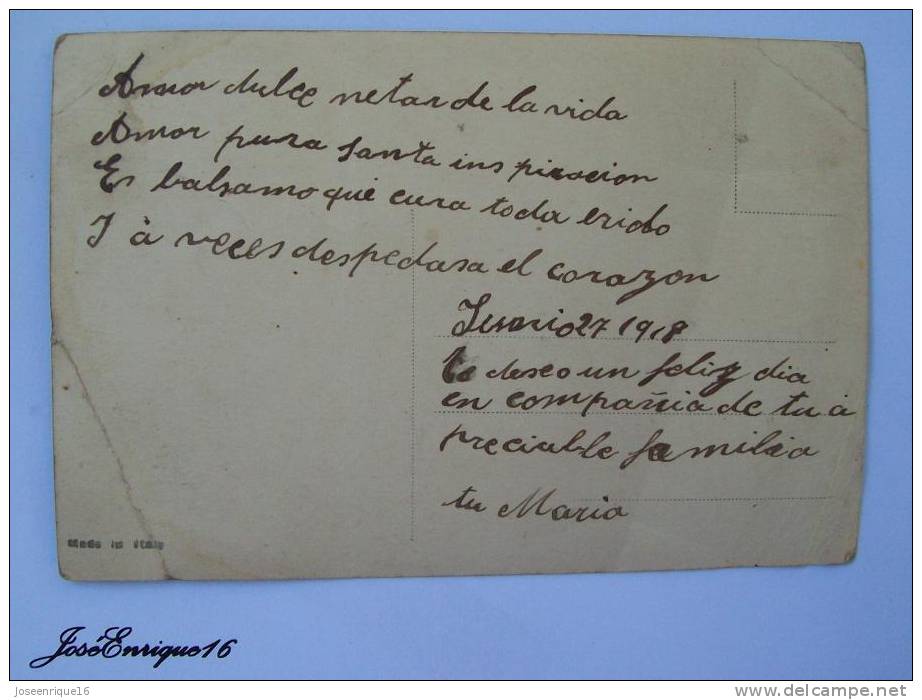 Amor dulce netar de la vida
Amor pura santa inspiracion
Es balsamo que cura toda erida
I à veces despedasa el corazon
27 1918
Te deseo un feliz dia
en compañia de tu a
preciable familia
tu Maria
Made in Italy
JoséEnrique16
Joseenrique16
delcampe.net